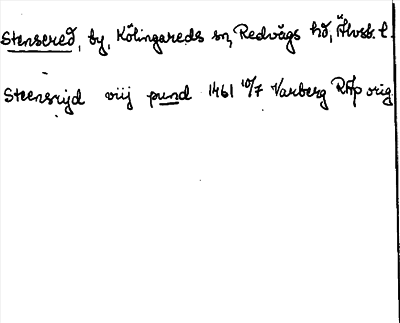 Stensered, by, Kölingareds sn, Redvägs hd, Älvsb. l.
Steensryd viij pund 1461 10/7 Varberg RAp orig